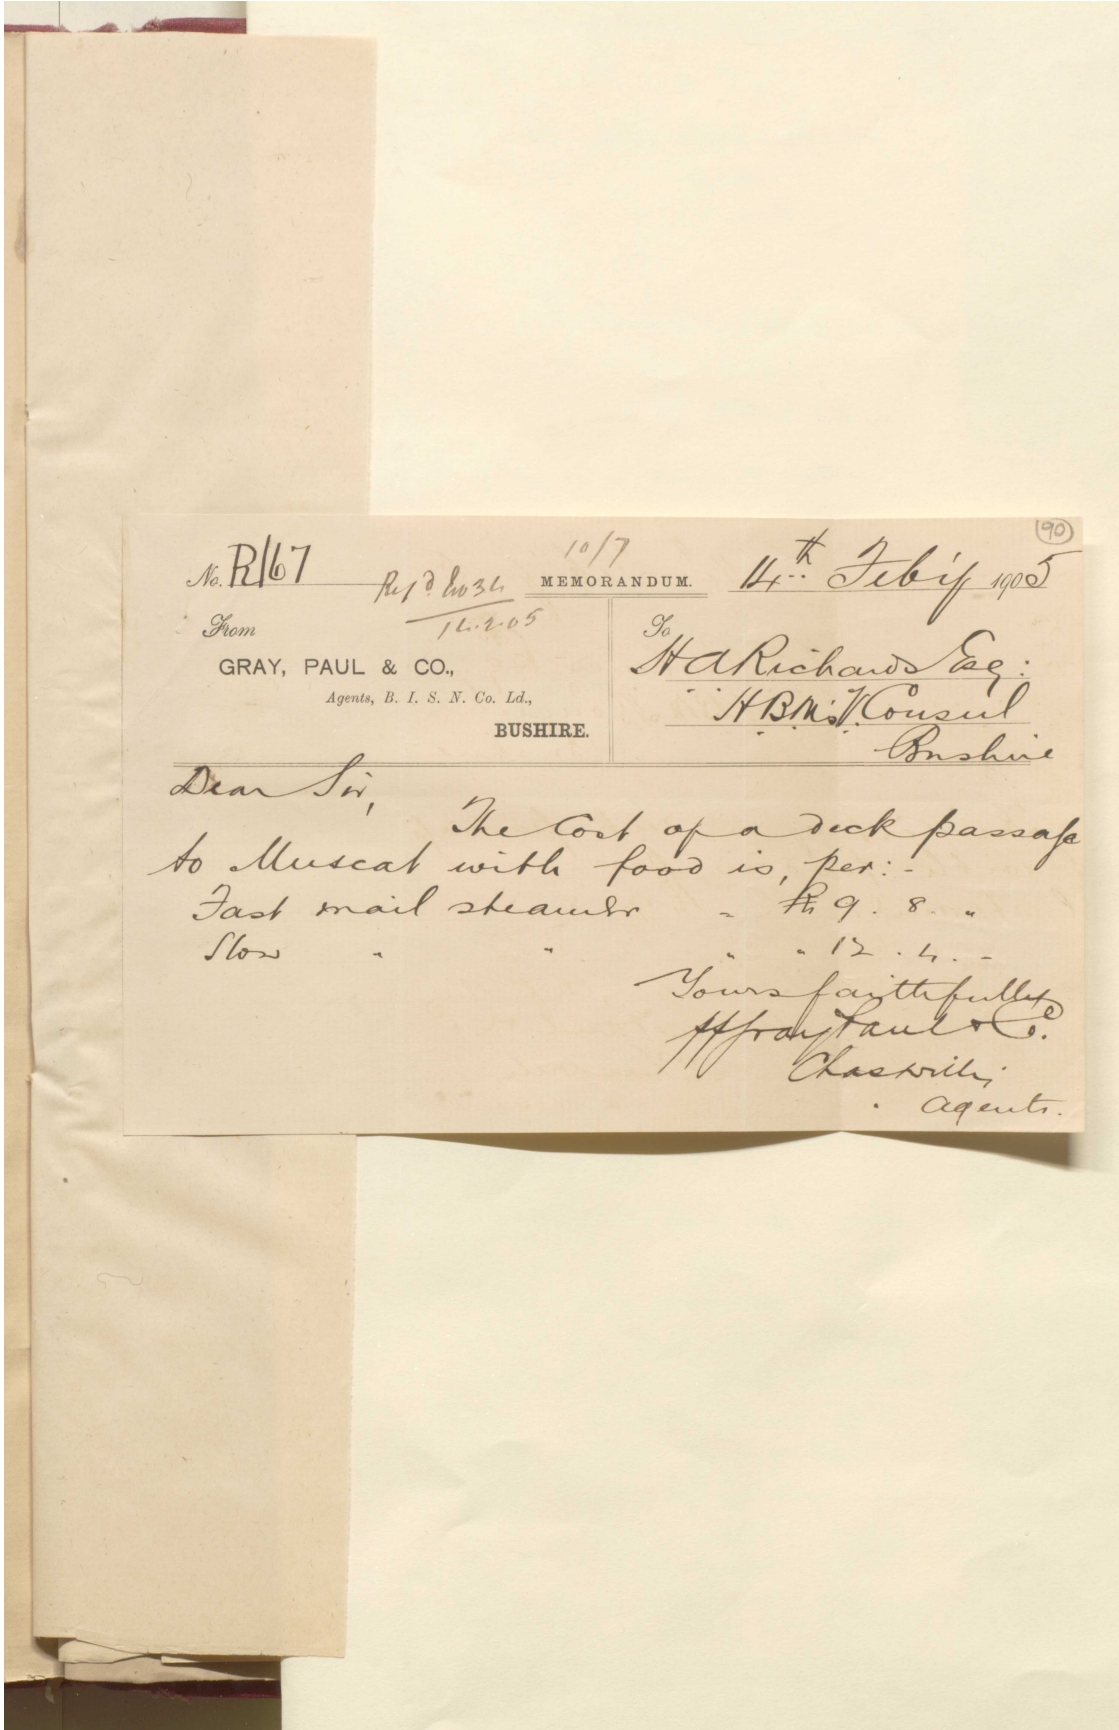 (90)
No. R/67
10/7
MEMORANDUM.
14th Feb'y 1905
Rep'd No 34
14.2.05
From
GRAY, PAUL & CO.,
Agents, B. I. S. N. Co. Ld.,
BUSHIRE.
To
H A Richards Esq:
H.B.M's V. Consul
Bushire
Dear Sir,
The Cost of a deck passage
to Muscat with food is, per: -
Fast mail steamer " Rs 9 . 8 . "
Slow " " " " 12 . 4 . -
Yours faithfully
Gray Paul & Co.
Agents.